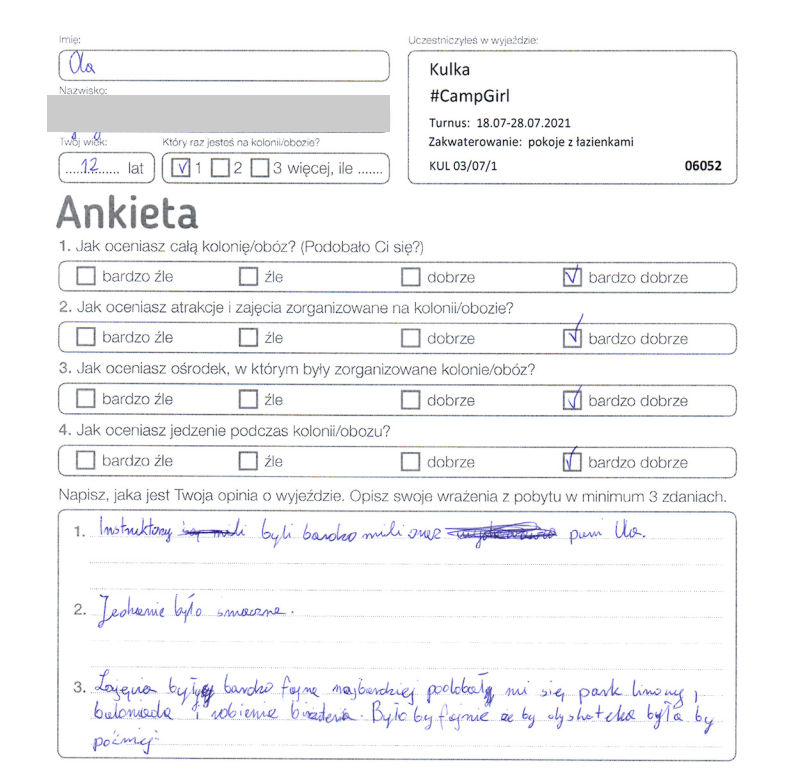 Imię:
Ola
Nazwisko:
Twój wiek:
12 lat
Który raz jesteś na kolonii/obozie?
1 2 3 więcej, ile .......
Uczestniczyłeś w wyjeździe:
Kulka
#CampGirl
Turnus: 18.07-28.07.2021
Zakwaterowanie: pokoje z łazienkami
KUL 03/07/1 06052
Ankieta
1. Jak oceniasz całą kolonię/obóz? (Podobało Ci się?)
bardzo źle źle dobrze bardzo dobrze
2. Jak oceniasz atrakcje i zajęcia zorganizowane na kolonii/obozie?
bardzo źle źle dobrze bardzo dobrze
3. Jak oceniasz ośrodek, w którym były zorganizowane kolonie/obóz?
bardzo źle źle dobrze bardzo dobrze
4. Jak oceniasz jedzenie podczas kolonii/obozu?
bardzo źle źle dobrze bardzo dobrze
Napisz, jaka jest Twoja opinia o wyjeździe. Opisz swoje wrażenia z pobytu w minimum 3 zdaniach.
1. Instruktorzy są mili byli bardzo mili oraz pani Ula.
2. Jedzenie było smaczne.
3. Zajęcia były bardzo fajne najbardziej podobały mi się park linowy,
baloniada i robienie biżuterii. Było by fajnie że by dyskoteka była by
później